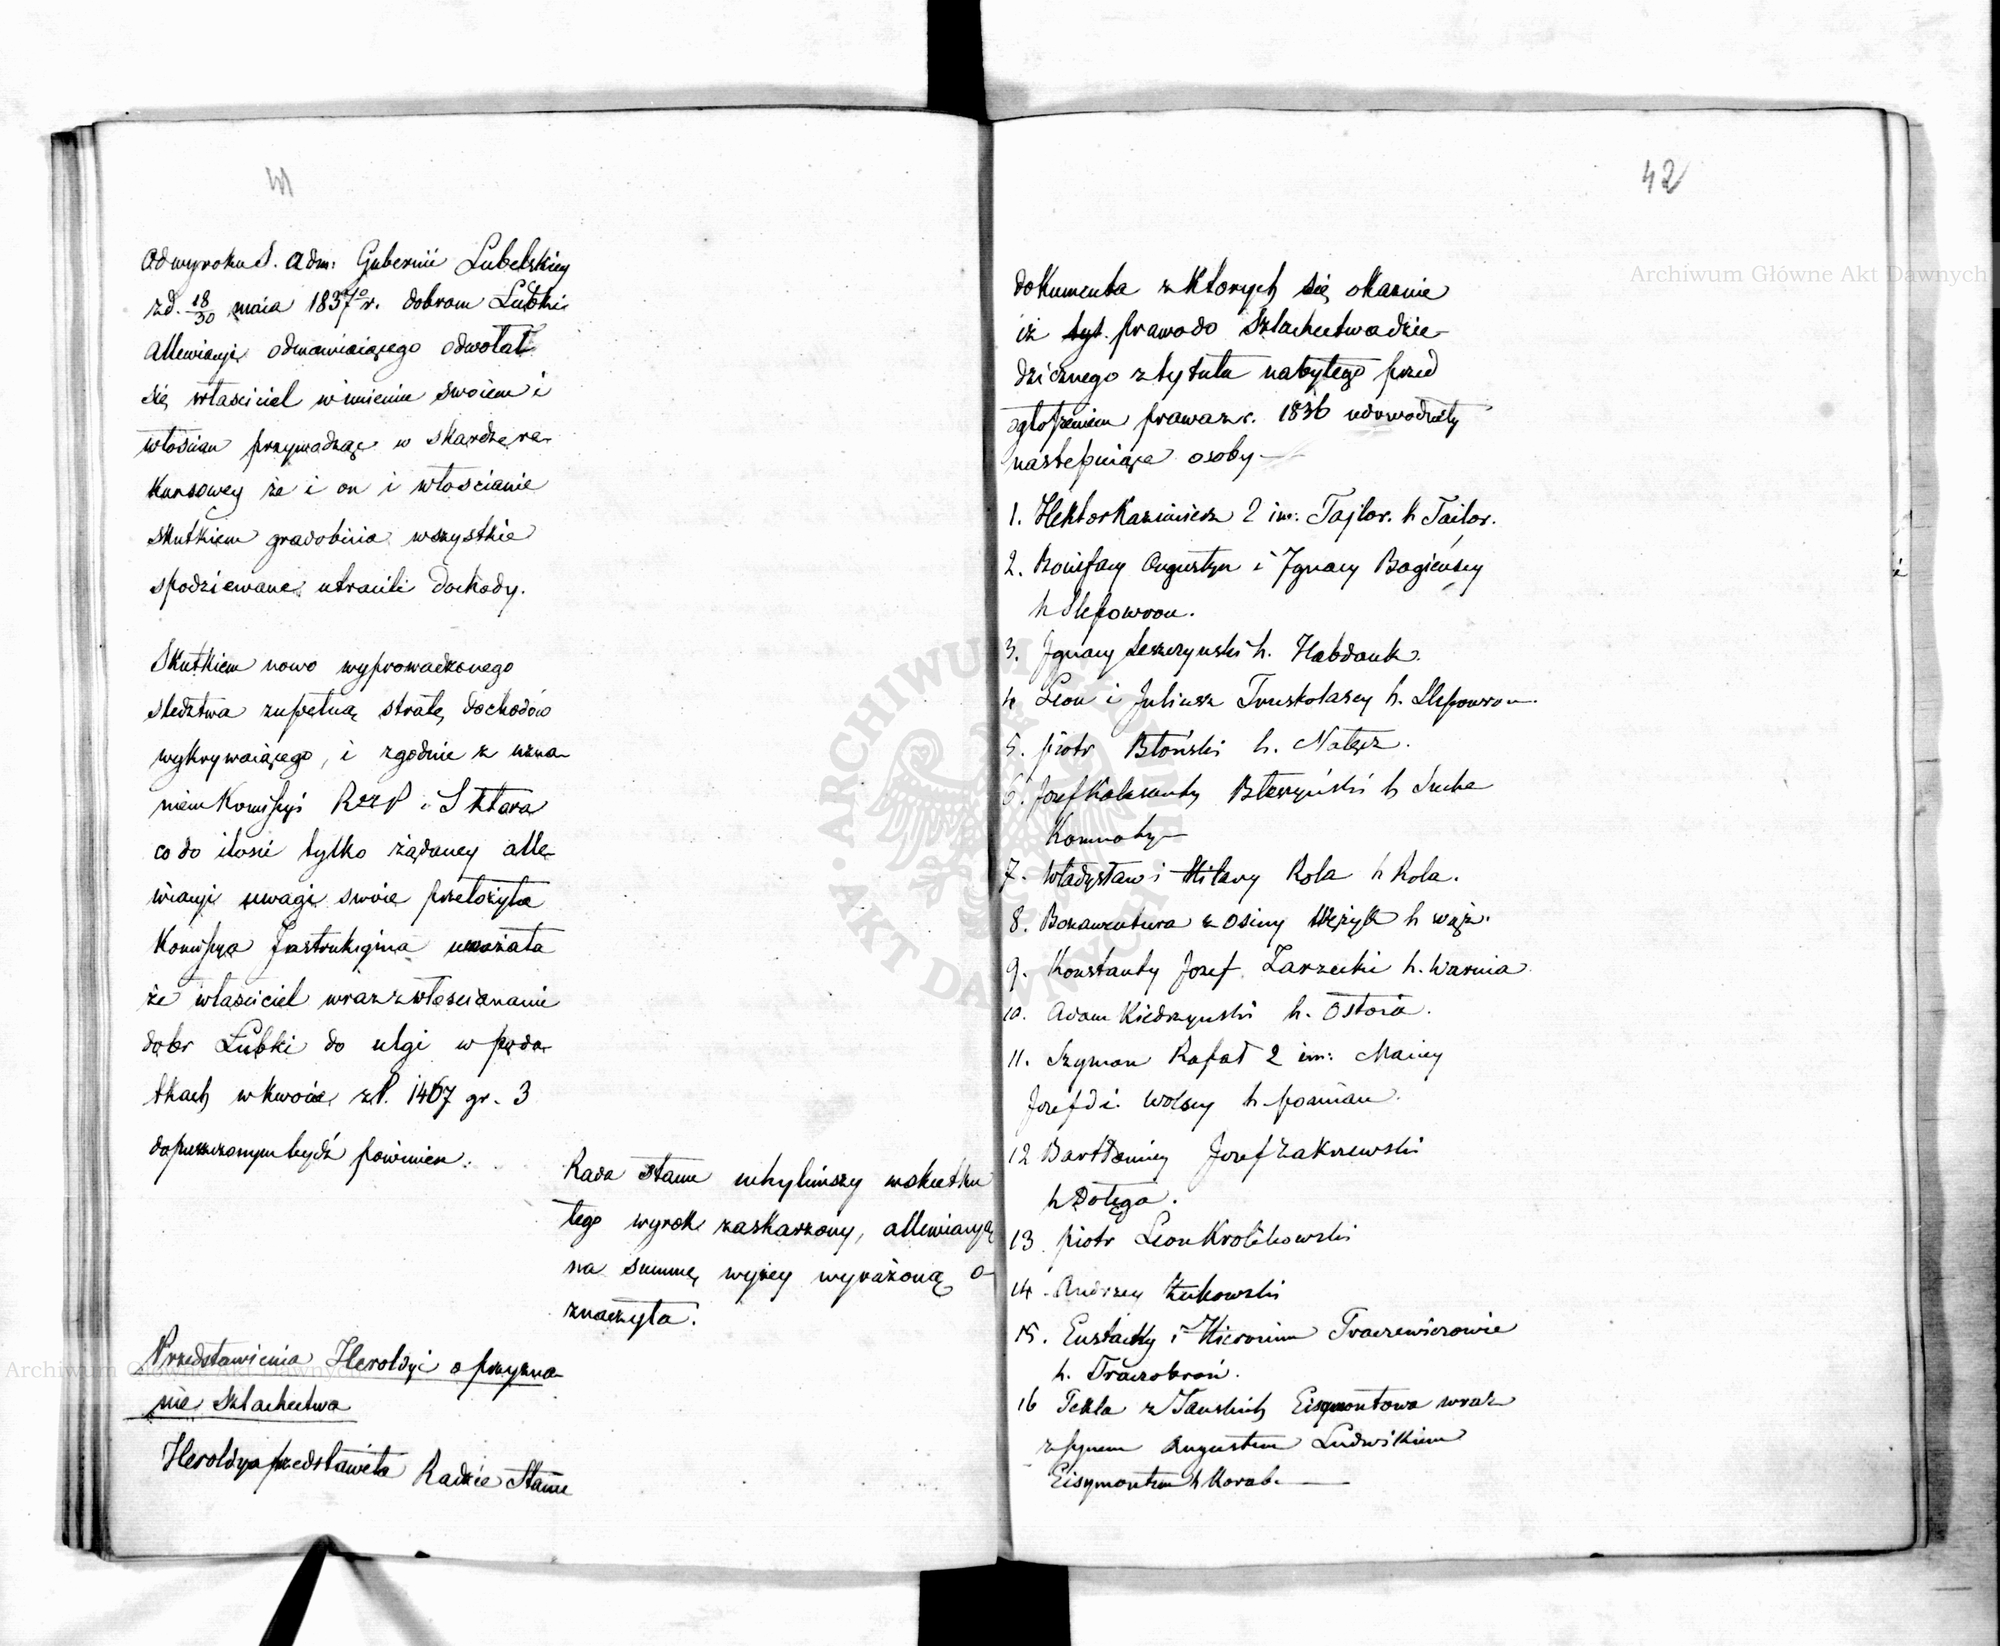 41
Od wyroku S. Adm: Gubernii Lubelskiey
z d. 18/30 maia 1837go r. dobrom Lubki
allewiacyi odmawiaiącego odwołał
się właściciel w imieniu swoiem i
włościan przywodząc w skardze re-
kursowey że i on i włościanie
skutkiem gradobicia wszystkie
spodziewane utracili dochody.
Skutkiem nowo wyprowadzonego
śledztwa zupełną stratę dochodów
wykrywaiącego, i zgodnie z uzna-
niem Kommissyi R P i Skarbu
co do ilosci tylko żądaney alle-
wiacyi uwagi swoie przełożyła
Kommissya Instrukcyjna uważała
że właściciel wraz z włościanami
dobr Lubki do ulgi w poda-
tkach w kwocie zł. 1467 gr. 3
dopuszczonym bydź powinien.
Rada Stanu uchyliwszy w skutku
tego wyrok zaskarżony, allewiacyą
na summę wyżey wyrażoną o-
znaczyła.
Przedstawienia Heroldyi o przyzna-
nie Szlachectwa
Heroldya przedstawiła Radzie Stanu
42
dokumenta z ktorych się okazuie
iż tyt. prawo do Szlachectwa dzie-
dzicznego z tytułu nabytego przed
ogłoszeniem prawa z r. 1836 udowodniły
następuiące osoby —
1. Hektor Kazimierz 2 im: Tajlor. h Tailor.
2. Bonifacy Augustyn i Ignacy Bagieńscy
h Slepowron.
3. Ignacy Leszczynski h. Habdank.
4 Leon i Juliusz Truskolascy h. Slepowron.
5. Piotr Błoński h. Nałęcz.
6. Jozef Kalasanty Błeszyński h Suche
Komnaty —
7. Władysław i Hilary Rola h Rola.
8. Bonawentura z Osiny Wężyk h wąż.
9. Konstanty Jozef Zarzecki h. Warnia
10. Adam Kiedrzynski h. Ostoia.
11. Szymon Rafał 2 im: Maciey
Jozef Wolscy h. Pomian.
12 Bartłomiey Jozef Zakrzewski
h Dołęga.
13. Piotr Leon Krolikowski
14. Andrzey Żukowski
15. Eustachy i Hieronim Traczewiczowie
h. Traczobroń.
16 Tekla z Tanskich Eisymontowa wraz
z synem Augustem Ludwikiem
Eisymontem h Korab. —
Archiwum Główne Akt Dawnych
Archiwum Główne Akt Dawnych
ARCHIWUM GŁÓWNE AKT DAWNYCH